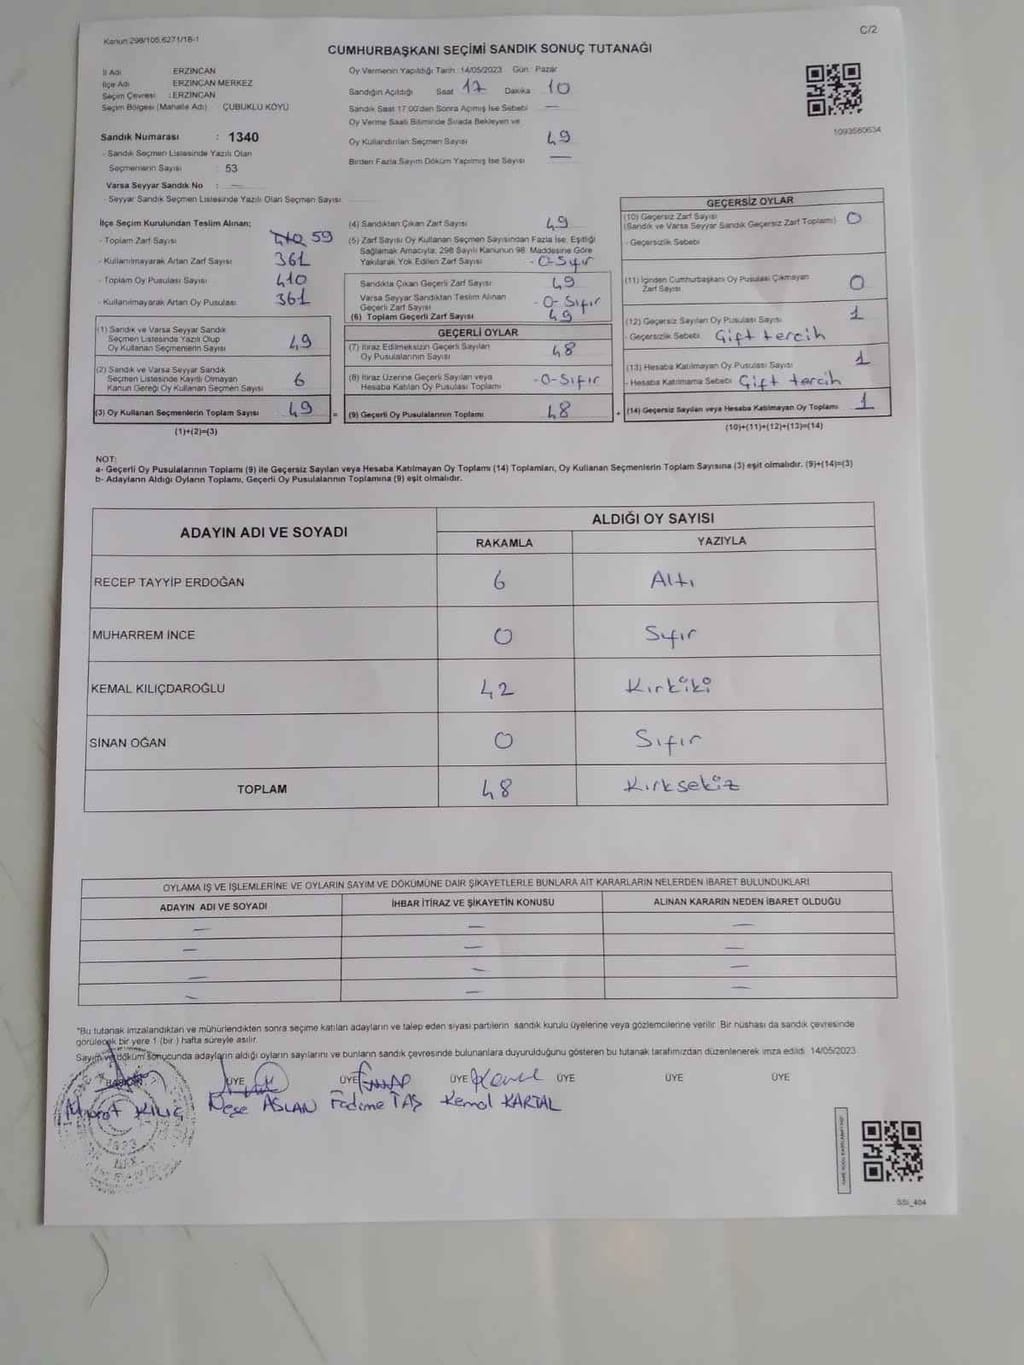 Kanun:298/105,6271/18-1
C/2
CUMHURBAŞKANI SEÇİMİ SANDIK SONUÇ TUTANAĞI
İl Adı : ERZİNCAN
İlçe Adı : ERZİNCAN MERKEZ
Seçim Çevresi : ERZİNCAN
Seçim Bölgesi (Mahalle Adı) : ÇUBUKLU KÖYÜ
Sandık Numarası : 1340
- Sandık Seçmen Listesinde Yazılı Olan
Seçmenlerin Sayısı : 53
Varsa Seyyar Sandık No : —
- Seyyar Sandık Seçmen Listesinde Yazılı Olan Seçmen Sayısı
Oy Vermenin Yapıldığı Tarih :14/05/2023 Gün : Pazar
Sandığın Açıldığı Saat 17 Dakika 10
Sandık Saat 17:00'den Sonra Açımış İse Sebebi —
Oy Verme Saati Bitiminde Sırada Bekleyen ve
Oy Kullandırılan Seçmen Sayısı 49
Birden Fazla Sayım Döküm Yapılmış İse Sayısı —
1093560634
İlçe Seçim Kurulundan Teslim Alınan;
- Toplam Zarf Sayısı 59
- Kullanılmayarak Artan Zarf Sayısı 361
- Toplam Oy Pusulası Sayısı 410
- Kullanılmayarak Artan Oy Pusulası 361
(1) Sandık ve Varsa Seyyar Sandık
Seçmen Listesinde Yazılı Olup
Oy Kullanan Seçmenlerin Sayısı 49
(2) Sandık ve Varsa Seyyar Sandık
Seçmen Listesinde Kayıtlı Olmayan
Kanun Gereği Oy Kullanan Seçmen Sayısı 6
(3) Oy Kullanan Seçmenlerin Toplam Sayısı 49 =
(1)+(2)=(3)
(4) Sandıktan Çıkan Zarf Sayısı 49
(5) Zarf Sayısı Oy Kullanan Seçmen Sayısından Fazla İse, Eşitliği
Sağlamak Amacıyla, 298 Sayılı Kanunun 98. Maddesine Göre
Yakılarak Yok Edilen Zarf Sayısı -0-Sıfır
Sandıkta Çıkan Geçerli Zarf Sayısı 49
Varsa Seyyar Sandıktan Teslim Alınan
Geçerli Zarf Sayısı -0-Sıfır
(6) Toplam Geçerli Zarf Sayısı 49
GEÇERLİ OYLAR
(7) İtiraz Edilmeksizin Geçerli Sayılan
Oy Pusulalarının Sayısı 48
(8) İtiraz Üzerine Geçerli Sayılan veya
Hesaba Katılan Oy Pusulası Toplamı -0-Sıfır
(9) Geçerli Oy Pusulalarının Toplamı 48 +
GEÇERSİZ OYLAR
(10) Geçersiz Zarf Sayısı
(Sandık ve Varsa Seyyar Sandık Geçersiz Zarf Toplamı) 0
- Geçersizlik Sebebi
(11) İçinden Cumhurbaşkanı Oy Pusulası Çıkmayan
Zarf Sayısı 0
(12) Geçersiz Sayılan Oy Pusulası Sayısı 1
- Geçersizlik Sebebi Çift tercih
(13) Hesaba Katılmayan Oy Pusulası Sayısı 1
- Hesaba Katılmama Sebebi Çift tercih
(14) Geçersiz Sayılan veya Hesaba Katılmayan Oy Toplamı 1
(10)+(11)+(12)+(13)=(14)
NOT:
a- Geçerli Oy Pusulalarının Toplamı (9) ile Geçersiz Sayılan veya Hesaba Katılmayan Oy Toplamı (14) Toplamları, Oy Kullanan Seçmenlerin Toplam Sayısına (3) eşit olmalıdır. (9)+(14)=(3)
b- Adayların Aldığı Oyların Toplamı, Geçerli Oy Pusulalarının Toplamına (9) eşit olmalıdır.
ADAYIN ADI VE SOYADI
ALDIĞI OY SAYISI
RAKAMLA YAZIYLA
RECEP TAYYİP ERDOĞAN 6 Altı
MUHARREM İNCE 0 Sıfır
KEMAL KILIÇDAROĞLU 42 Kırkiki
SİNAN OĞAN 0 Sıfır
TOPLAM 48 Kırksekiz
OYLAMA İŞ VE İŞLEMLERİNE VE OYLARIN SAYIM VE DÖKÜMÜNE DAİR ŞİKAYETLERLE BUNLARA AİT KARARLARIN NELERDEN İBARET BULUNDUKLARI
ADAYIN ADI VE SOYADI İHBAR İTİRAZ VE ŞİKAYETİN KONUSU ALINAN KARARIN NEDEN İBARET OLDUĞU
— — —
— — —
— — —
— — —
"Bu tutanak imzalandıktan ve mühürlendikten sonra seçime katılan adayların ve talep eden siyasi partilerin sandık kurulu üyelerine veya gözlemcilerine verilir. Bir nüshası da sandık çevresinde
görülecek bir yere 1 (bir ) hafta süreyle asılır.
Sayım ve döküm sonucunda adayların aldığı oyların sayılarını ve bunların sandık çevresinde bulunanlara duyurulduğunu gösteren bu tutanak tarafımızdan düzenlenerek imza edildi. 14/05/2023
BAŞKAN ÜYE ÜYE ÜYE ÜYE ÜYE ÜYE
Murat KILIÇ Neşe ASLAN Fadime TAŞ Kemal KARTAL
1923
SSI_404